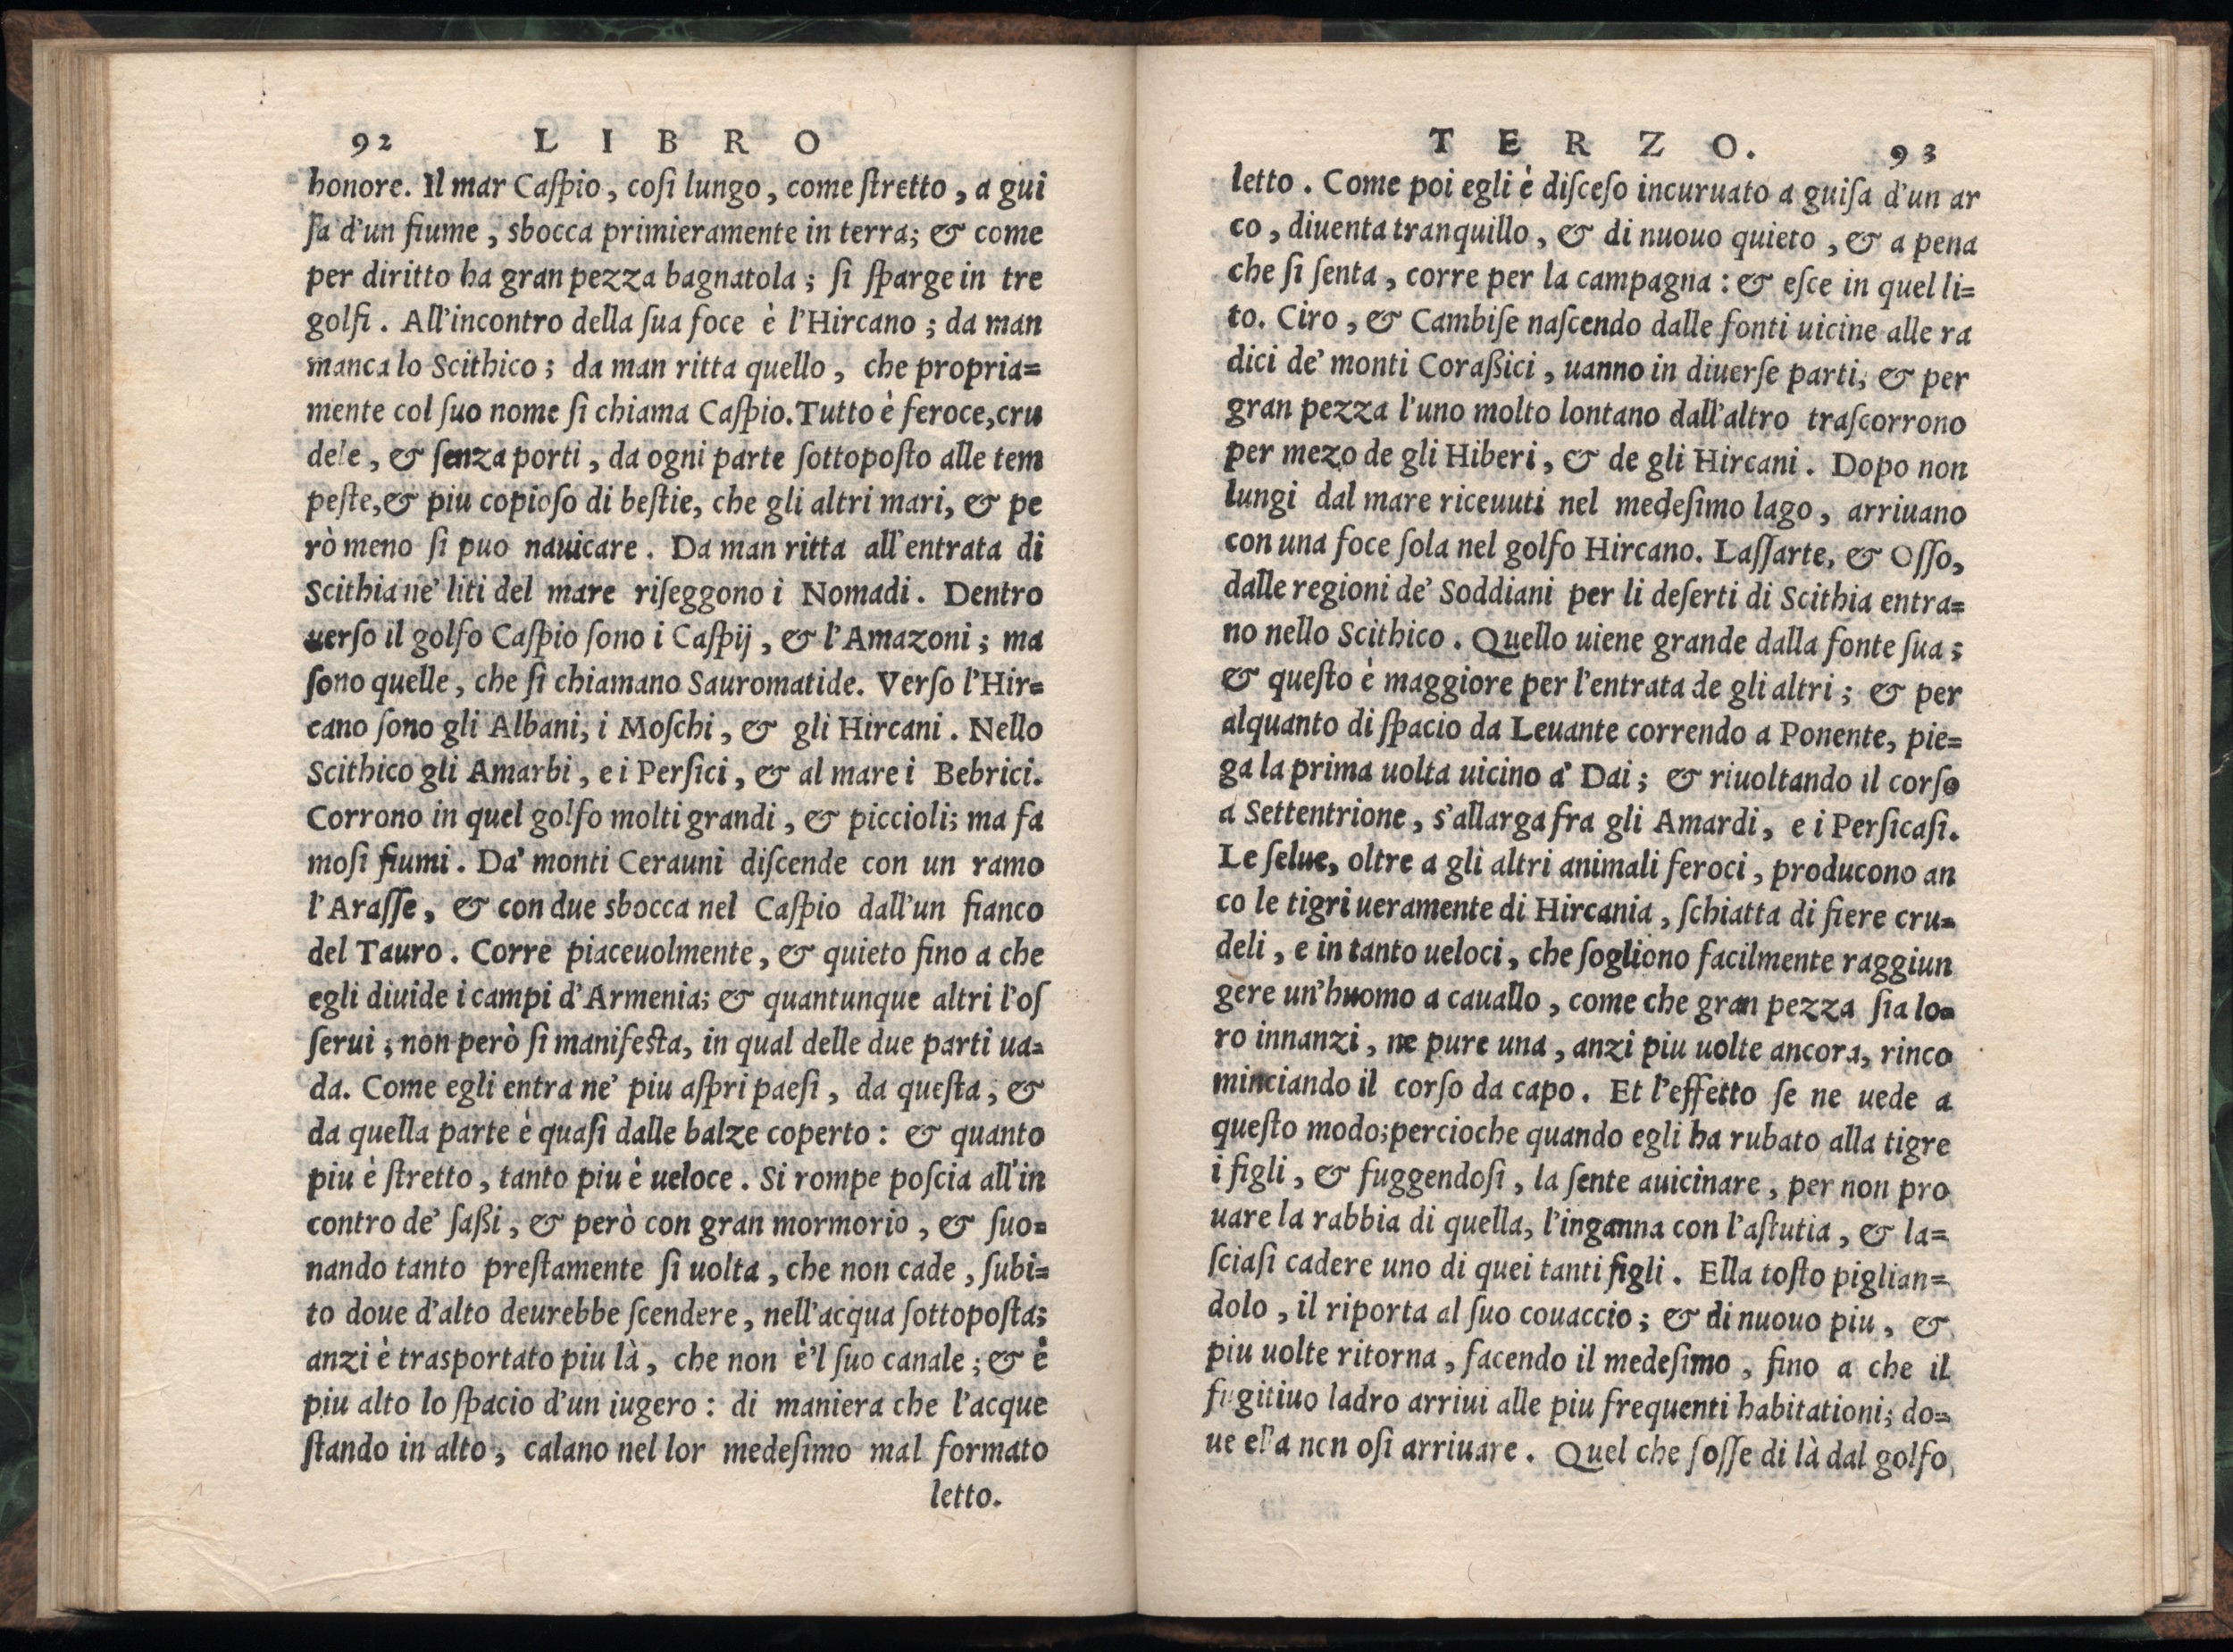 92 LIBRO
honore. Il mar Caſpio, coſi lungo, come ſtretto, a gui
ſa d'un fiume, sbocca primieramente in terra; & come
per diritto ha gran pezza bagnatola; ſi ſparge in tre
golfi. All'incontro della ſua foce è l'Hircano; da man
manca lo Scithico; da man ritta quello, che propria=
mente col ſuo nome ſi chiama Caſpio. Tutto è feroce, cru
dele, & ſenza porti, da ogni parte ſottopoſto alle tem
peſte, & piu copioſo di beſtie, che gli altri mari, & pe
rò meno ſi puo nauicare. Da man ritta all'entrata di
Scithia ne' liti del mare riſeggono i Nomadi. Dentro
uerſo il golfo Caſpio ſono i Caſpij, & l'Amazoni; ma
ſono quelle, che ſi chiamano Sauromatide. Verſo l'Hir=
cano ſono gli Albani, i Moſchi, & gli Hircani. Nello
Scithico gli Amarbi, e i Perſici, & al mare i Bebrici.
Corrono in quel golfo molti grandi, & piccioli; ma fa
moſi fiumi. Da' monti Cerauni diſcende con un ramo
l'Araſſe, & con due sbocca nel Caſpio dall'un fianco
del Tauro. Corre piaceuolmente, & quieto fino a che
egli diuide i campi d'Armenia; & quantunque altri l'oſ
ſerui; non però ſi manifeſta, in qual delle due parti ua=
da. Come egli entra ne' piu aſpri paeſi, da queſta, &
da quella parte è quaſi dalle balze coperto: & quanto
piu è ſtretto, tanto piu è ueloce. Si rompe poſcia all'in
contro de' ſaßi, & però con gran mormorio, & ſuo=
nando tanto preſtamente ſi uolta, che non cade, ſubi=
to doue d'alto deurebbe ſcendere, nell'acqua ſottopoſta;
anzi è trasportato piu là, che non è'l ſuo canale; & è
piu alto lo ſpacio d'un iugero: di maniera che l'acque
ſtando in alto, calano nel lor medeſimo mal formato
letto.
TERZO. 93
letto. Come poi egli è diſceſo incuruato a guiſa d'un ar
co, diuenta tranquillo, & di nuouo quieto, & a pena
che ſi ſenta, corre per la campagna: & eſce in quel li=
to. Ciro, & Cambiſe naſcendo dalle fonti uicine alle ra
dici de' monti Coraßici, uanno in diuerſe parti, & per
gran pezza l'uno molto lontano dall'altro traſcorrono
per mezo de gli Hiberi, & de gli Hircani. Dopo non
lungi dal mare riceuuti nel medeſimo lago, arriuano
con una foce ſola nel golfo Hircano. Laſſarte, & Oſſo,
dalle regioni de' Soddiani per li deſerti di Scithia entra=
no nello Scithico. Quello uiene grande dalla fonte ſua;
& queſto è maggiore per l'entrata de gli altri; & per
alquanto di ſpacio da Leuante correndo a Ponente, pie=
ga la prima uolta uicino a' Dai; & riuoltando il corſo
a Settentrione, s'allarga fra gli Amardi, e i Perſicaſi.
Le ſelue, oltre a gli altri animali feroci, producono an
co le tigri ueramente di Hircania, ſchiatta di fiere cru=
deli, e in tanto ueloci, che ſogliono facilmente raggiun
gere un'huomo a cauallo, come che gran pezza ſia lo=
ro innanzi, ne pure una, anzi piu uolte ancora, rinco
minciando il corſo da capo. Et l'effetto ſe ne uede a
queſto modo; percioche quando egli ha rubato alla tigre
i figli, & fuggendoſi, la ſente auicinare, per non pro
uare la rabbia di quella, l'inganna con l'aſtutia, & la=
ſciaſi cadere uno di quei tanti figli. Ella toſto piglian=
dolo, il riporta al ſuo couaccio; & di nuouo piu, &
piu uolte ritorna, facendo il medeſimo, fino a che il
fugitiuo ladro arriui alle piu frequenti habitationi; do=
ue ella non oſi arriuare. Quel che ſoſſe di là dal golfo,